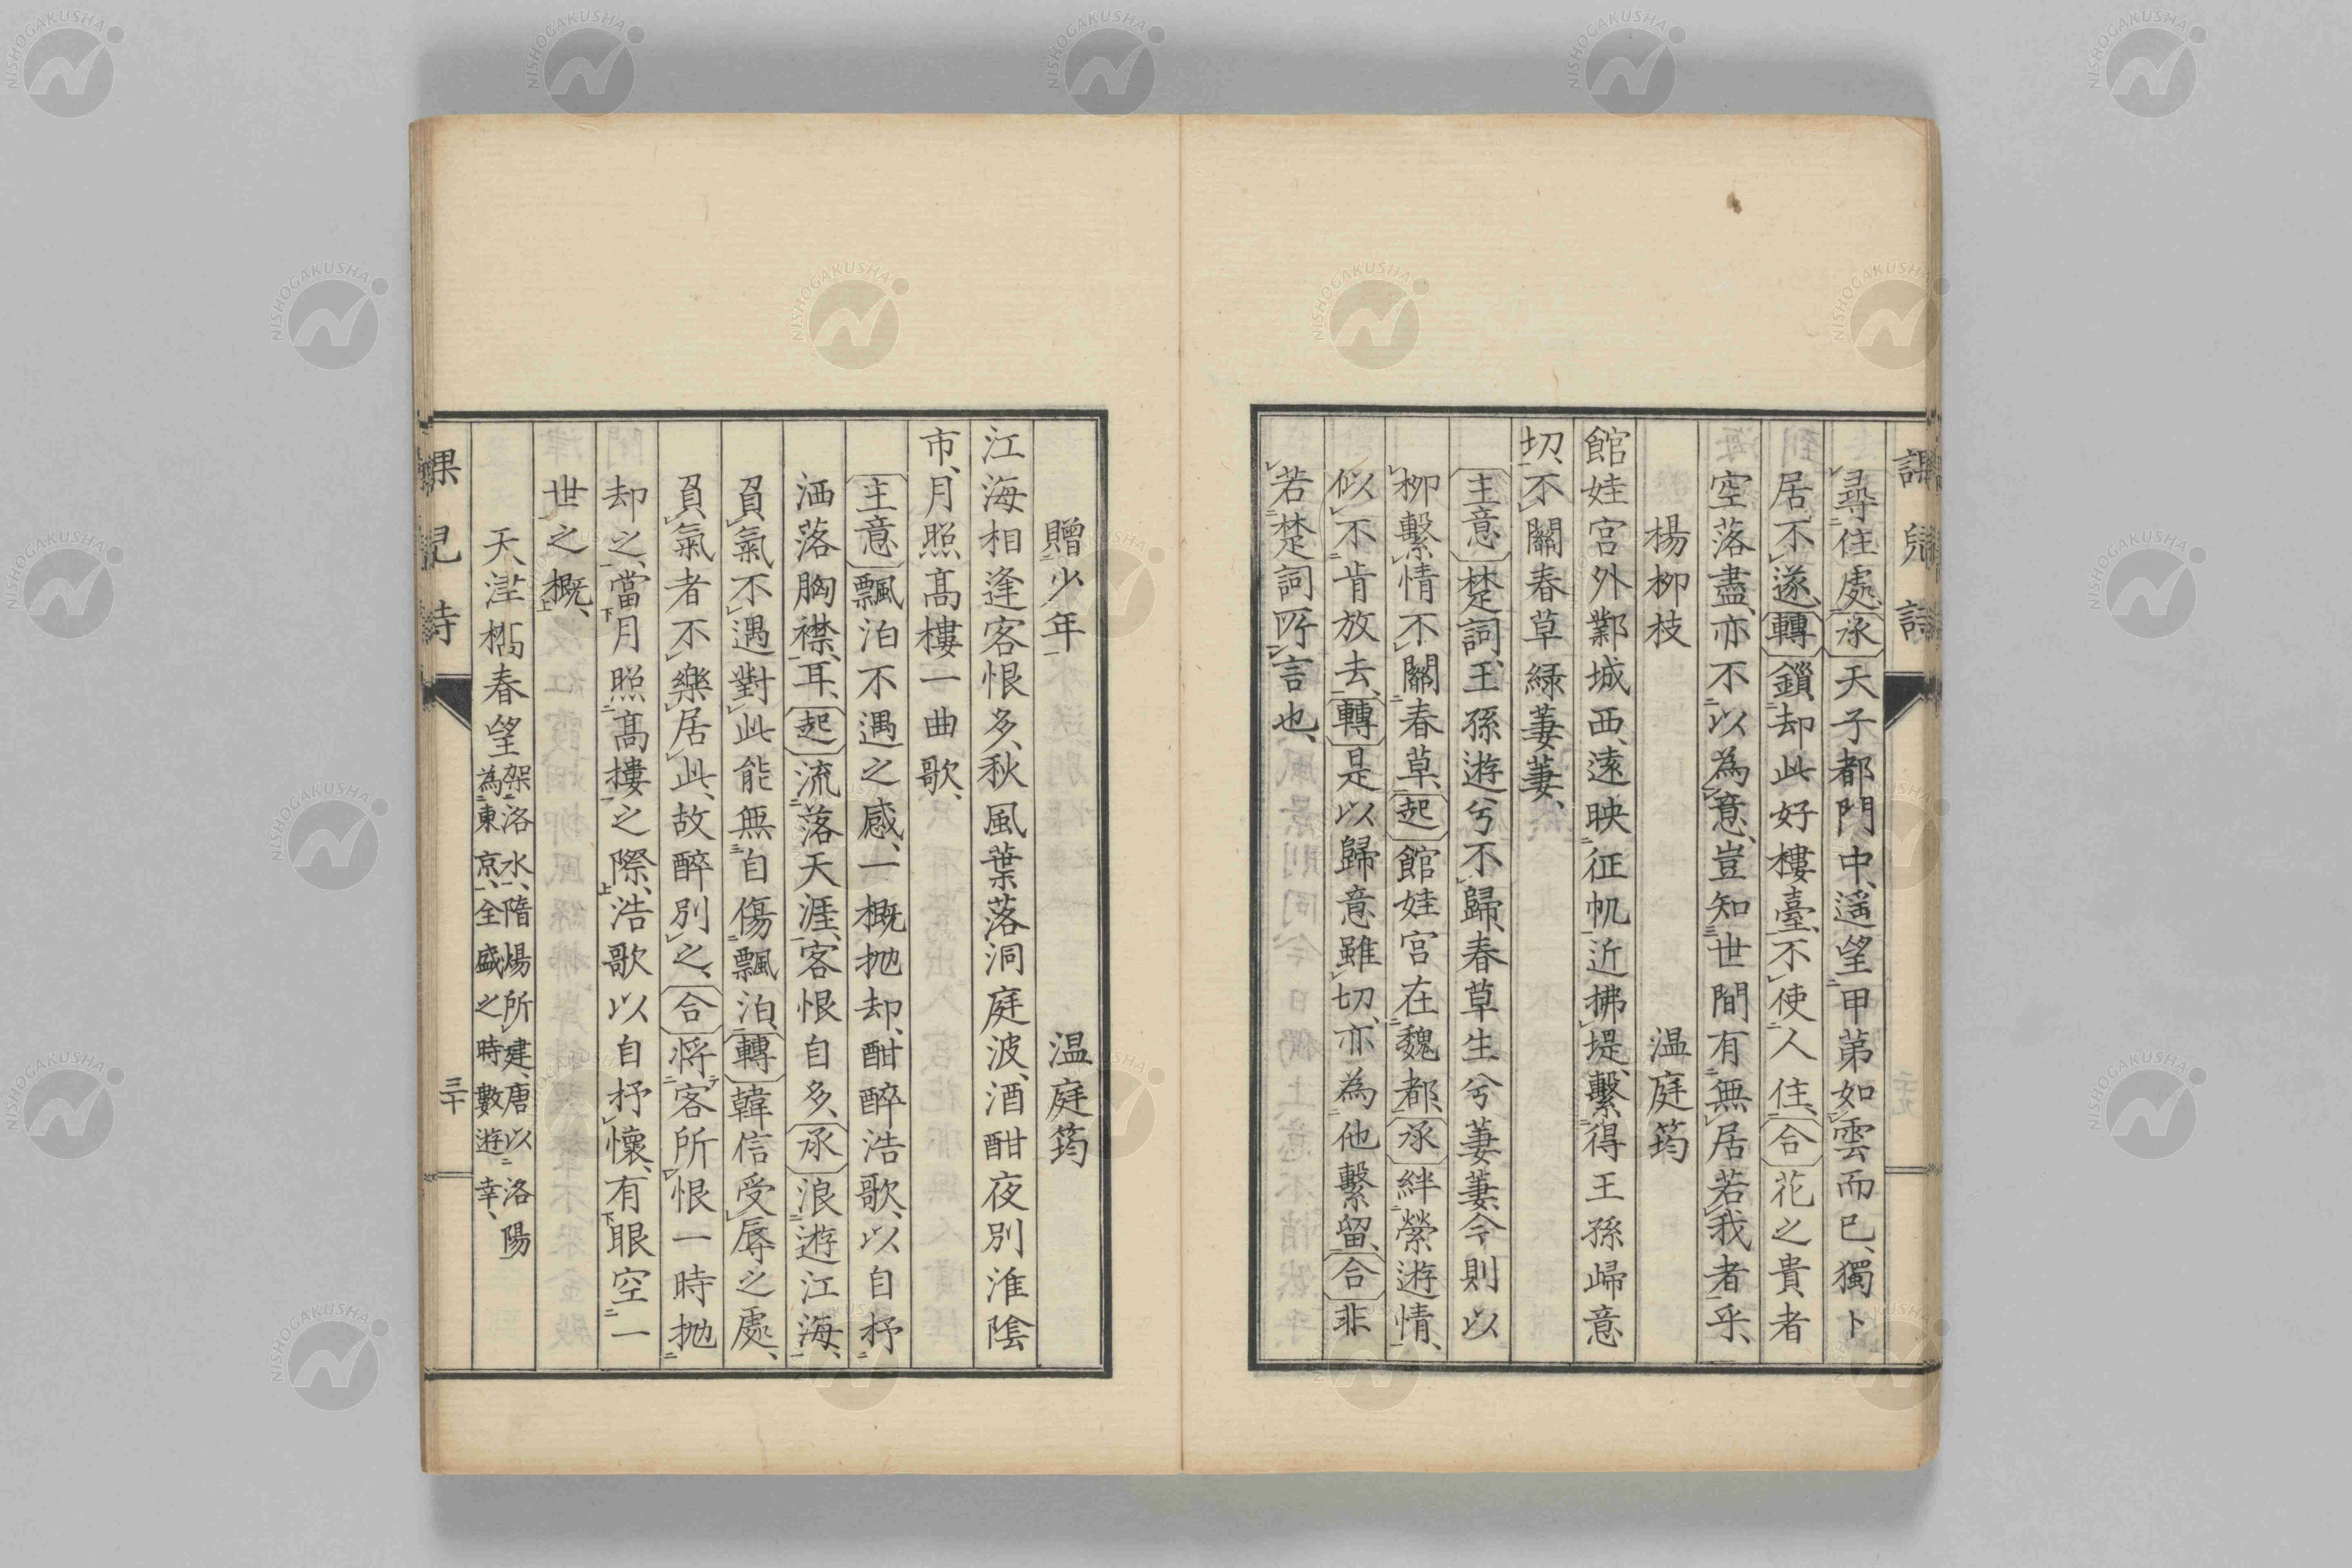 課兒詩
尋住處、承天子都門中、遥望甲第如雲而已、獨卜
居不遂、轉鎖却此好樓臺、不使人住、合花之貴者
空落盡、亦不以為意、豈知世間有無居若我者乎、
楊柳枝　温庭筠
館娃宮外鄴城西、遠映征帆近拂堤、繫得王孫歸意
切、不關春草緑萋萋、
主意楚詞、王孫遊兮不歸、春草生兮萋萋、今則以
柳繫情、不關春草、起館娃宮在魏都、承絆縈遊情、
似不肯放去、轉是以歸意雖切、亦為他繫留、合非
若楚詞所言也、
贈少年　温庭筠
江海相逢客恨多、秋風葉落洞庭波、酒酣夜別淮陰
市、月照高樓一曲歌、
主意飄泊不遇之感、一概抛却、酣醉浩歌、以自抒
洒落胸襟耳、起流落天涯、客恨自多、承浪遊江海、
負氣不遇對此能無自傷飄泊、轉韓信受辱之處、
負氣者不樂居此、故醉別之、合將客所恨一時抛
却之、當月照高樓之際、浩歌以自抒懷、有眼空一
世之概、
天津橋春望 架洛水、隋煬所建、唐以洛陽
為東京、全盛之時數遊幸、
課兒詩
三十
NISHOGAKUSHA